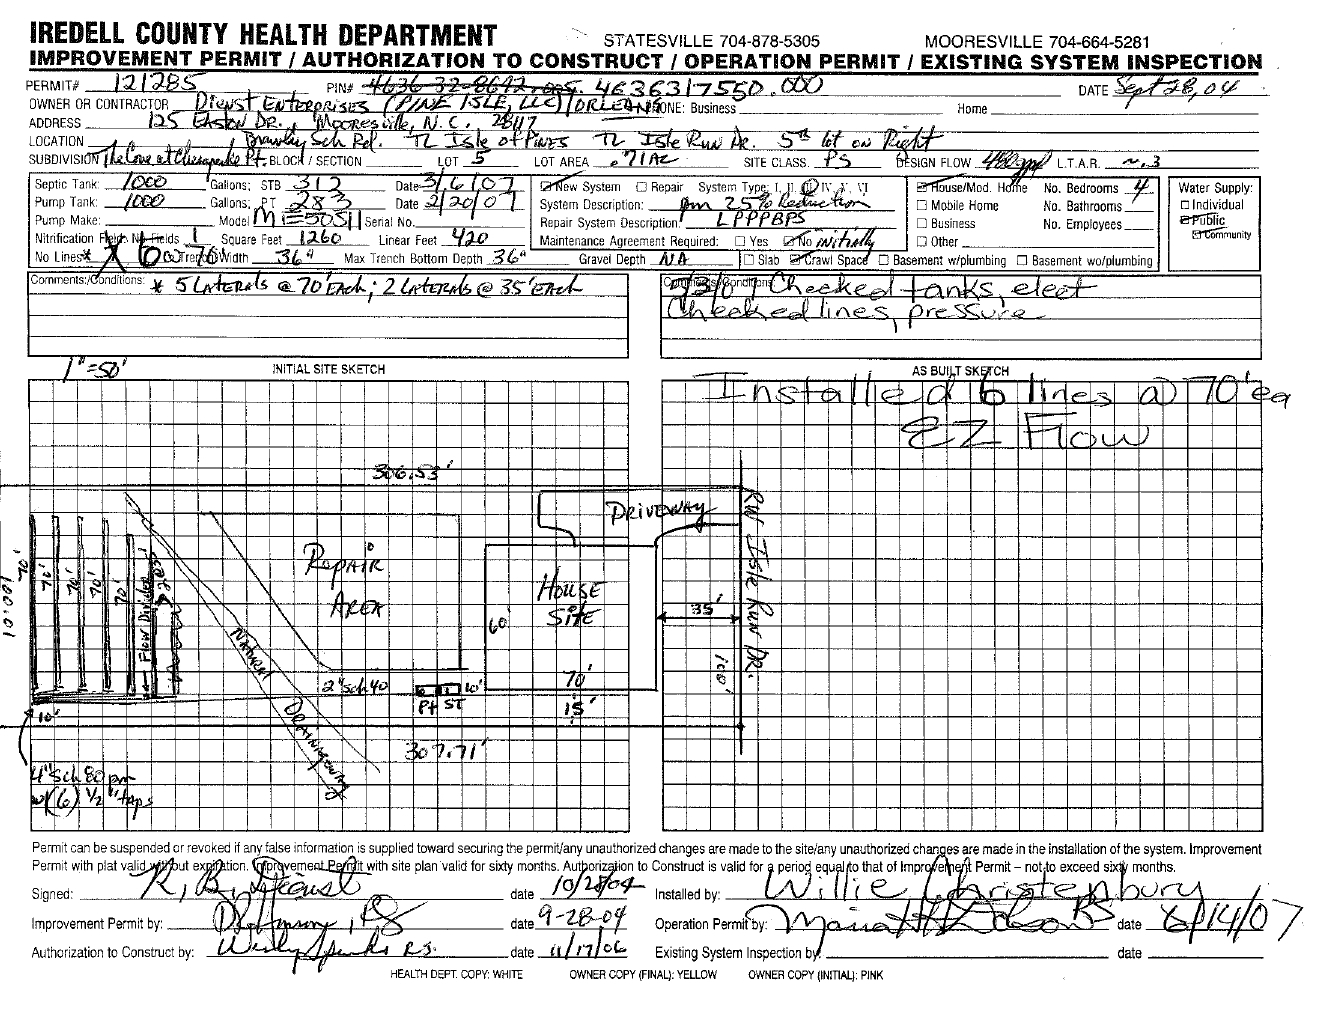 IREDELL COUNTY HEALTH DEPARTMENT STATESVILLE 704-878-5305 MOORESVILLE 704-664-5281
IMPROVEMENT PERMIT / AUTHORIZATION TO CONSTRUCT / OPERATION PERMIT / EXISTING SYSTEM INSPECTION
PERMIT# 121285 PIN# 4636-32-8642.005. 4636317550.000 DATE Sept 28, 04
OWNER OR CONTRACTOR Dienst Enterprises (Pine Isle, LLC)/ORLEANS PHONE: Business Home
ADDRESS 125 Easton Dr., Mooresville, N.C. 28117
LOCATION Brawley Sch Rd. TL Isle of Pines TL Isle Run Dr. 5th lot on Right
SUBDIVISION The Cove at Chesapeake Pt. BLOCK / SECTION LOT 5 LOT AREA .71AC SITE CLASS. PS DESIGN FLOW 480gpd L.T.A.R. ~.3
Septic Tank: 1000 Gallons; STB 312 Date 3/6/07
Pump Tank: 1000 Gallons; PT 283 Date 2/20/07
Pump Make: Model ME50S11 Serial No.
Nitrification Field: No Fields 1 Square Feet 1260 Linear Feet 420
No Lines * 6 @ 70 Trench Width 36" Max Trench Bottom Depth 36" Gravel Depth NA
New System Repair System Type: I, II, III, IV, V, VI
System Description: pm 25% Reduction
Repair System Description: LPPPBPS
Maintenance Agreement Required: Yes No initially
House/Mod. Home No. Bedrooms 4
Mobile Home No. Bathrooms
Business No. Employees
Other
Slab Crawl Space Basement w/plumbing Basement wo/plumbing
Water Supply:
Individual
Public
Community
Comments:/Conditions: * 5 Laterals @ 70' Each; 2 Laterals @ 35' Each
Comments:/Conditions: Checked tanks, elect
Checked lines, pressure
1"=50' INITIAL SITE SKETCH
AS BUILT SKETCH
Installed 6 lines @ 70'ea
EZ Flow
306.53'
DRIVEWAY
R/W Isle Run Dr.
Repair
Area
House
Site
60'
70'
35'
100'
15'
100.01
70'
70'
70'
70'
70'
Flow Divider
Natural
Drainageway
2" sch 40
PT ST
10'
10'
307.71'
4" Sch 80 pm
w/(6) 1/2" taps
Permit can be suspended or revoked if any false information is supplied toward securing the permit/any unauthorized changes are made to the site/any unauthorized changes are made in the installation of the system. Improvement
Permit with plat valid without expiration. Improvement Permit with site plan valid for sixty months. Authorization to Construct is valid for a period equal to that of Improvement Permit – not to exceed sixty months.
Signed: R. B. Dienst date 10/28/04 Installed by: Willie Christenbury
Improvement Permit by: date 9-28-04 Operation Permit by: date 6/14/07
Authorization to Construct by: Wesley Sparks R.S. date 11/17/06 Existing System Inspection by: date
HEALTH DEPT. COPY: WHITE OWNER COPY (FINAL): YELLOW OWNER COPY (INITIAL): PINK